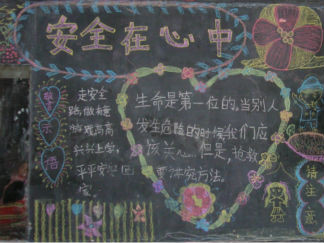 安全在心中
警示语
走安全
路,做文明
高高
兴兴上学,
平平安安回
家
生命是第一位的,当别人
发生危险的时候我们应
该关心。但是,抢救
要讲究方法。
请注意